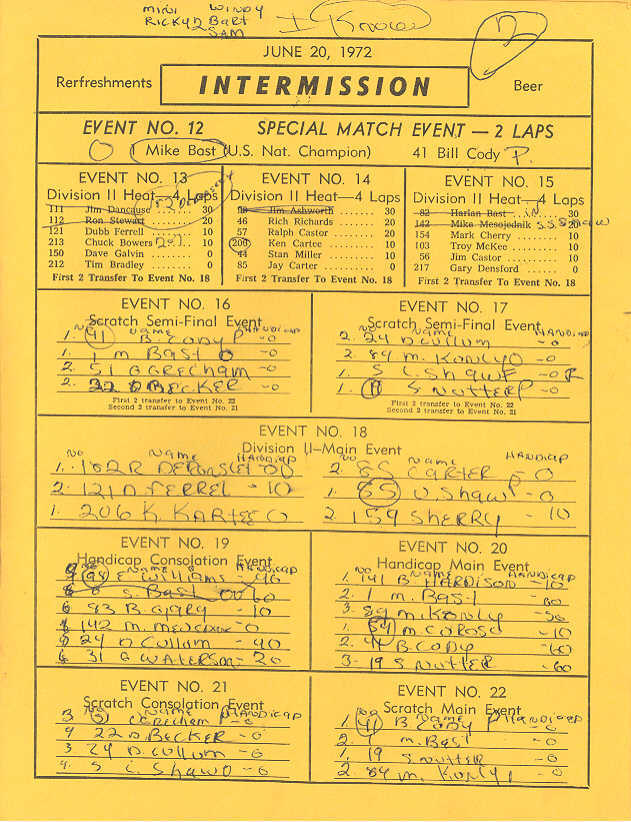 MINI WINDY
RICKY 2 BART
SAM
I Know
2
JUNE 20, 1972
Rerfreshments
INTERMISSION
Beer
EVENT NO. 12 SPECIAL MATCH EVENT — 2 LAPS
O 1 Mike Bast (U.S. Nat. Champion) 41 Bill Cody P.
EVENT NO. 13
Division II Heat—4 Laps
111 Jim Dancause 30
112 Ron Stewart ........ 20
121 Dubb Ferrell ........ 10
213 Chuck Bowers 0
150 Dave Galvin ........ 0
212 Tim Bradley ........ 0
First 2 Transfer To Event No. 18
EVENT NO. 14
Division II Heat—4 Laps
Jim Ashworth ........ 30
46 Rich Richards ........ 20
57 Ralph Castor ........ 20
206 Ken Cartee ........ 0
44 Stan Miller ........ 10
85 Jay Carter ........ 0
First 2 Transfer To Event No. 18
EVENT NO. 15
Division II Heat—4 Laps
82 Harlan Bast 30
142 Mike Mesojednik S. SHAW 20
154 Mark Cherry ........ 10
103 Troy McKee ........ 10
56 Jim Castor ........ 10
217 Gary Densford ...... 0
First 2 Transfer To Event No. 18
EVENT NO. 16
Scratch Semi-Final Event
NO NAME HANDICAP
1. 41 B. CODY P -0
1. 1 M BAST O -0
2. 51 GRECHAM -0
2. 22 D BECKER -0
First 2 transfer to Event No. 22
Second 2 transfer to Event No. 21
EVENT NO. 17
Scratch Semi-Final Event
NO NAME HANDICAP
2. 24 D CULLUM -0
2. 84 M. KONLY O -0
1. 5 L. SHAW F -0 R
1. 19 S NUTTER P -0
First 2 transfer to Event No. 22
Second 2 transfer to Event No. 21
EVENT NO. 18
Division II—Main Event
NO NAME HANDICAP
1. 112 R DERONSLET 00
2. 121 D FERREL - 10
1. 206 K. KARTEE O
NO NAME HANDICAP
2. 85 CARTER - 0
1. 55 W. SHAW P -0
2 159 SHERRY - 10
EVENT NO. 19
Handicap Consolation Event
NO NAME HANDICAP
98 E WILLIAMS 40
S. BAST
6 93 B. GARY - 10
142 M. -0
24 D CULLUM - 40
31 G WATERSON- 20
EVENT NO. 20
Handicap Main Event
NO NAME HANDICAP
1. 141 B HARDISON -10
2. 1 M. BAST -60
3. 84 M. KONLY -50
1. M COROSO -10
2. 41 B CODY -60
3- 19 S NUTTER - 60
EVENT NO. 21
Scratch Consolation Event
NO NAME HANDICAP
3 51 GRECHAM P -0
4 22 D. BECKER -0
3 24 D. CULLUM -0
4. 5 L. SHAW O -0
EVENT NO. 22
Scratch Main Event
NO NAME HANDICAP
1. 41 B CODY P -0
2. 1 M. BAST -0
1. 19 S NUTTER -0
2. 84 M. KONLY -0